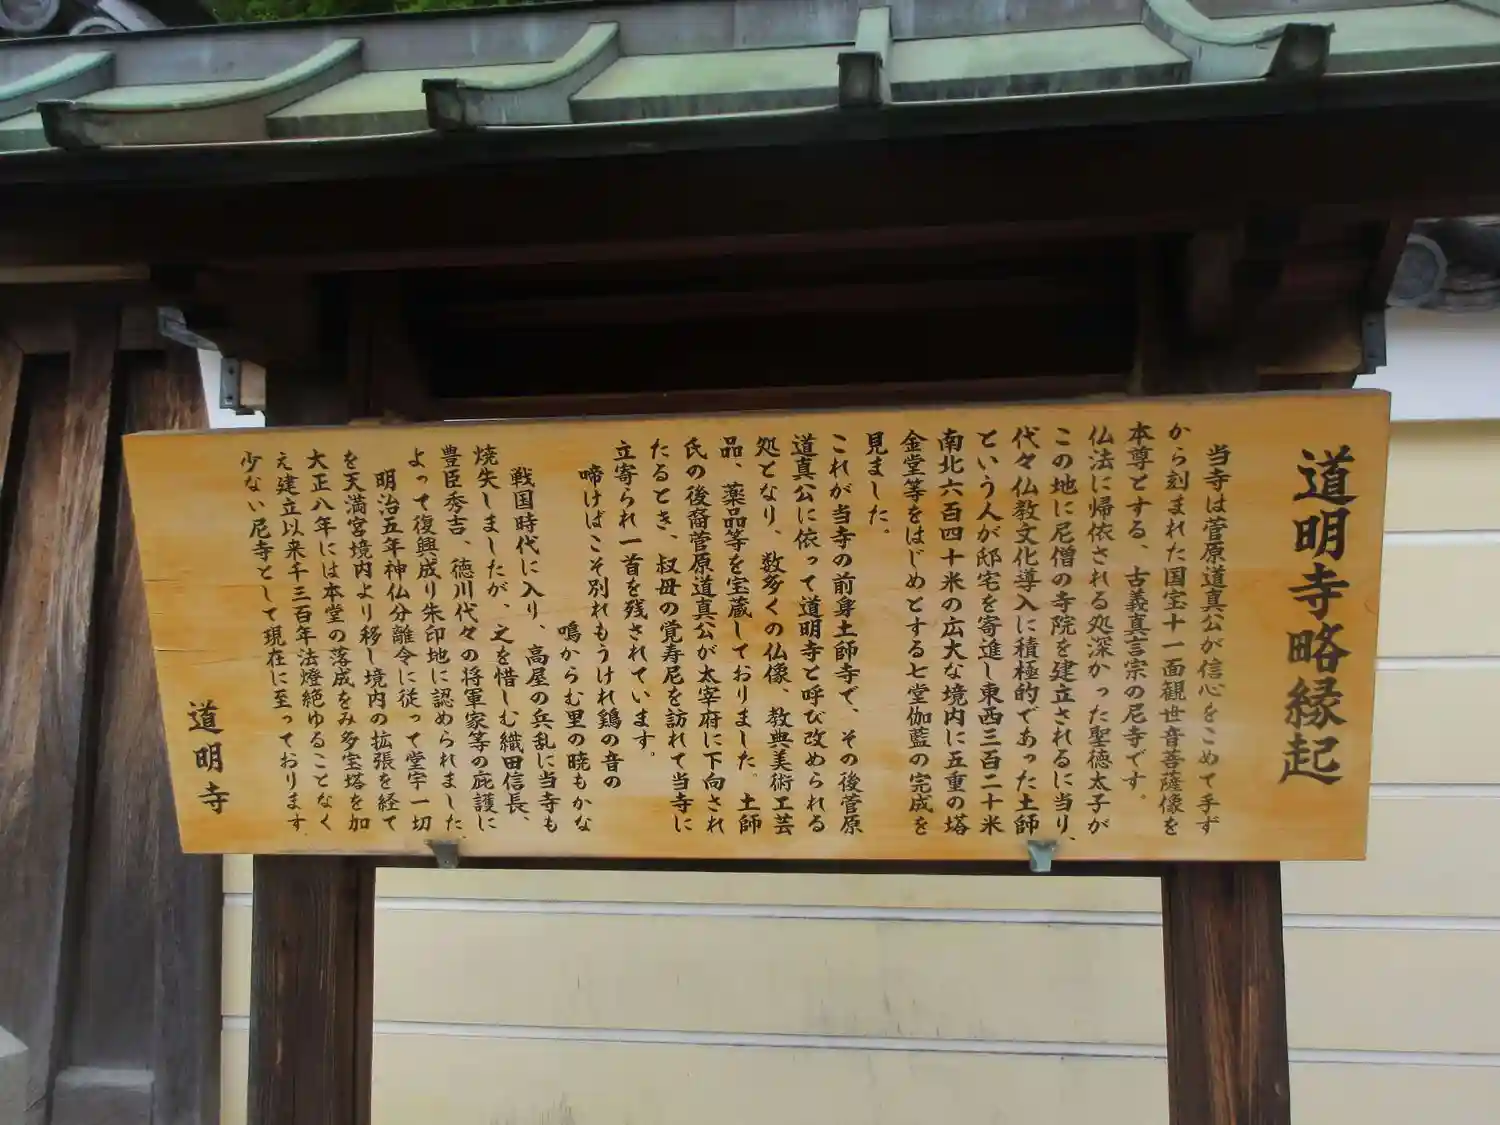 道明寺略縁起
当寺は菅原道真公が信心をこめて手ず
から刻まれた国宝十一面観世音菩薩像を
本尊とする、古義真言宗の尼寺です。
仏法に帰依される処深かった聖徳太子が
この地に尼僧の寺院を建立されるに当り、
代々仏教文化導入に積極的であった土師
という人が邸宅を寄進し東西三百二十米
南北六百四十米の広大な境内に五重の塔
金堂等をはじめとする七堂伽藍の完成を
見ました。
これが当寺の前身土師寺で、その後菅原
道真公に依って道明寺と呼び改められる
処となり、数多くの仏像、教典美術工芸
品、薬品等を宝蔵しておりました。土師
氏の後裔菅原道真公が太宰府に下向され
たるとき、叔母の覚寿尼を訪れて当寺に
立寄られ一首を残されています。
啼けばこそ別れもうけれ鶏の音の
鳴からむ里の暁もかな
戦国時代に入り、高屋の兵乱に当寺も
焼失しましたが、之を惜しむ織田信長、
豊臣秀吉、徳川代々の将軍家等の庇護に
よって復興成り朱印地に認められました、
明治五年神仏分離令に従って堂宇一切
を天満宮境内より移し境内の拡張を経て
大正八年には本堂の落成をみ多宝塔を加
え建立以来千三百年法燈絶ゆることなく
少ない尼寺として現在に至っております。
道明寺